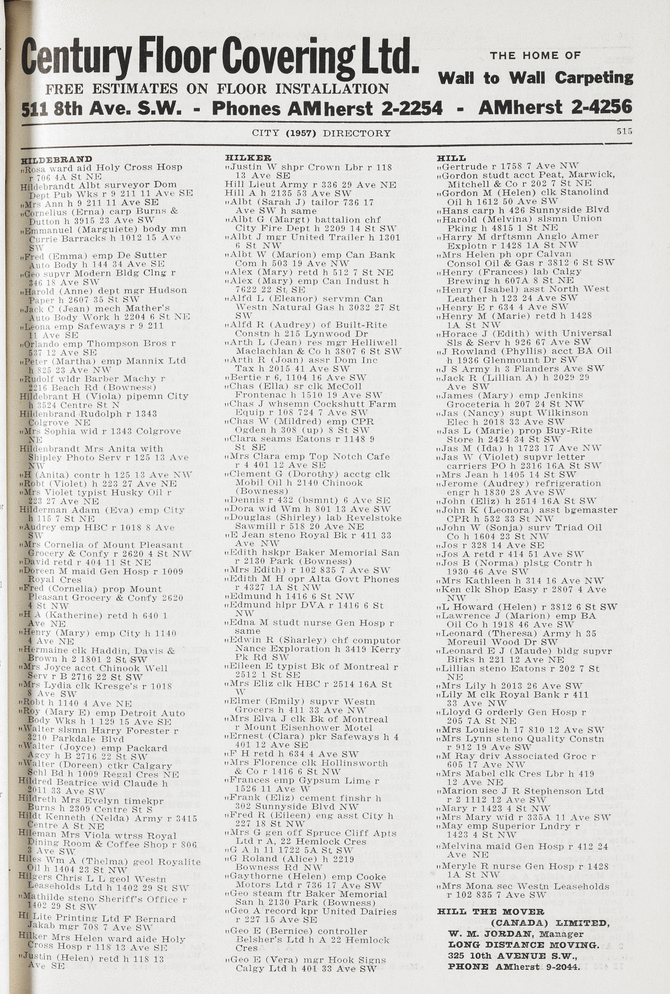 Century Floor Covering Ltd.
THE HOME OF
Wall to Wall Carpeting
FREE ESTIMATES ON FLOOR INSTALLATION
511 8th Ave. S.W. - Phones AMherst 2-2254 - AMherst 2-4256
CITY (1957) DIRECTORY
515
HILDEBRAND
„Rosa ward aid Holy Cross Hosp
r 706 4A St NE
Hildebrandt Albt surveyor Dom
Dept Pub Wks r 9 211 11 Ave SE
„Mrs Ann h 9 211 11 Ave SE
„Cornelius (Erna) carp Burns &
Dutton h 3915 23 Ave SW
„Emmanuel (Marguiete) body mn
Currie Barracks h 1012 15 Ave
SW
„Fred (Emma) emp De Sutter
Auto Body h 144 34 Ave SE
„Geo supvr Modern Bldg Clng r
346 18 Ave SW
„Harold (Anne) dept mgr Hudson
Paper h 2607 35 St SW
„Jack C (Jean) mech Mather's
Auto Body Work h 2204 6 St NE
„Leona emp Safeways r 9 211
11 Ave SE
„Orlando emp Thompson Bros r
537 12 Ave SE
„Peter (Martha) emp Mannix Ltd
h 825 23 Ave NW
„Rudolf wldr Barber Machy r
2216 Beach Rd (Bowness)
Hildebrant H (Viola) pipemn City
h 3524 Centre St N
Hildenbrand Rudolph r 1343
Colgrove NE
„Mrs Sophia wid r 1343 Colgrove
NE
Hildenbrandt Mrs Anita with
Shipley Photo Serv r 125 13 Ave
NW
„H (Anita) contr h 125 13 Ave NW
„Robt (Violet) h 223 27 Ave NE
„Mrs Violet typist Husky Oil r
223 27 Ave NE
Hilderman Adam (Eva) emp City
h 115 7 St NE
„Audrey emp HBC r 1018 8 Ave
SW
„Mrs Cornelia of Mount Pleasant
Grocery & Confy r 2620 4 St NW
„David retd r 404 11 St NE
„Doreen M maid Gen Hosp r 1009
Royal Cres
„Fred (Cornelia) prop Mount
Pleasant Grocery & Confy 2620
4 St NW
„H A (Katherine) retd h 640 1
Ave NE
„Henry (Mary) emp City h 1140
4 Ave NE
„Hermaine clk Haddin, Davis &
Brown h 2 1801 2 St SW
„Mrs Joyce acct Chinook Well
Serv r B 2716 22 St SW
„Mrs Lydia clk Kresge's r 1018
8 Ave SW
„Robt h 1140 4 Ave NE
„Roy (Mary E) emp Detroit Auto
Body Wks h 1 129 15 Ave SE
„Walter slsmn Harry Forester r
3210 Parkdale Blvd
„Walter (Joyce) emp Packard
Agcy h B 2716 22 St SW
„Walter (Doreen) ctkr Calgary
Schl Bd h 1009 Regal Cres NE
Hildred Beatrice wid Claude h
2011 33 Ave SW
Hildreth Mrs Evelyn timekpr
Burns h 2309 Centre St S
Hildt Kenneth (Nelda) Army r 3415
Centre A St NE
Hileman Mrs Viola wtrss Royal
Dining Room & Coffee Shop r 806
3 Ave SW
Hiles Wm A (Thelma) geol Royalite
Oil h 1404 23 St NW
Hilgers Chris L L geol Westn
Leaseholds Ltd h 1402 29 St SW
„Mathilde steno Sheriff's Office r
1402 29 St SW
Hi Lite Printing Ltd F Bernard
Jakab mgr 708 7 Ave SW
Hilker Mrs Helen ward aide Holy
Cross Hosp r 118 13 Ave SE
„Justin (Helen) retd h 118 13
Ave SE
HILKER
„Justin W shpr Crown Lbr r 118
13 Ave SE
Hill Lieut Army r 336 29 Ave NE
Hill A h 2135 53 Ave SW
„Albt (Sarah J) tailor 736 17
Ave SW h same
„Albt G (Margt) battalion chf
City Fire Dept h 2209 14 St SW
„Albt J mgr United Trailer h 1301
6 St NW
„Albt W (Marion) emp Can Bank
Com h 503 19 Ave NW
„Alex (Mary) retd h 512 7 St NE
„Alex (Mary) emp Can Indust h
7622 22 St SE
„Alfd L (Eleanor) servmn Can
Westn Natural Gas h 3032 27 St
SW
„Alfd R (Audrey) of Built-Rite
Constn h 215 Lynwood Dr
„Arth L (Jean) res mgr Helliwell
Maclachlan & Co h 3807 6 St SW
„Arth R (Joan) assr Dom Inc
Tax h 2015 41 Ave SW
„Bertie r 6, 1104 16 Ave SW
„Chas (Ella) sr clk McColl
Frontenac h 1510 19 Ave SW
„Chas J whsemn Cockshutt Farm
Equip r 108 724 7 Ave SW
„Chas W (Mildred) emp CPR
Ogden h 308 (up) 8 St SW
„Clara seams Eatons r 1148 9
St SE
„Mrs Clara emp Top Notch Cafe
r 4 401 12 Ave SE
„Clement G (Dorothy) acctg clk
Mobil Oil h 2140 Chinook
(Bowness)
„Dennis r 432 (bsmnt) 6 Ave SE
„Dora wid Wm h 801 13 Ave SW
„Douglas (Shirley) lab Revelstoke
Sawmill r 518 20 Ave NE
„E Jean steno Royal Bk r 411 33
Ave NW
„Edith hskpr Baker Memorial San
r 2130 Park (Bowness)
„Mrs Edith) r 102 835 7 Ave SW
„Edith M H opr Alta Govt Phones
r 4327 1A St NW
„Edmund h 1416 6 St NW
„Edmund hlpr DVA r 1416 6 St
NW
„Edna M studt nurse Gen Hosp r
same
„Edwin R (Sharley) chf computor
Nance Exploration h 3419 Kerry
Pk Rd SW
„Eileen E typist Bk of Montreal r
2512 1 St SE
„Mrs Eliz clk HBC r 2514 16A St
W
„Elmer (Emily) supvr Westn
Grocers h 411 33 Ave NW
„Mrs Elva J clk Bk of Montreal
r Mount Eisenhower Motel
„Ernest (Clara) pkr Safeways h 4
401 12 Ave SE
„F H retd h 634 4 Ave SW
„Mrs Florence clk Hollinsworth
& Co r 1416 6 St NW
„Frances emp Gypsum Lime r
1526 11 Ave W
„Frank (Eliz) cement finshr h
302 Sunnyside Blvd NW
„Fred R (Eileen) eng asst City h
227 18 St NW
„Mrs G gen off Spruce Cliff Apts
Ltd r A, 22 Hemlock Cres
„G A h 11 1722 5A St SW
„G Roland (Alice) h 2219
Bowness Rd NW
„Gaythorne (Helen) emp Cooke
Motors Ltd r 736 17 Ave SW
„Geo steam ftr Baker Memorial
San h 2130 Park (Bowness)
„Geo A record kpr United Dairies
r 227 15 Ave SE
„Geo E (Bernice) controller
Belsher's Ltd h A 22 Hemlock
Cres
„Geo E (Vera) mgr Hook Signs
Calgy Ltd h 401 33 Ave SW
HILL
„Gertrude r 1758 7 Ave NW
„Gordon studt acct Peat, Marwick,
Mitchell & Co r 202 7 St NE
„Gordon M (Helen) clk Stanolind
Oil h 1612 50 Ave SW
„Hans carp h 426 Sunnyside Blvd
„Harold (Melvina) slsmn Union
Pking h 4815 1 St NE
„Harry M drftsmn Anglo Amer
Explotn r 1428 1A St NW
„Mrs Helen ph opr Calvan
Consol Oil & Gas r 3812 6 St SW
„Henry (Frances) lab Calgy
Brewing h 607A 8 St NE
„Henry (Isabel) asst North West
Leather h 123 24 Ave SW
„Henry E r 634 4 Ave SW
„Henry M (Marie) retd h 1428
1A St NW
„Horace J (Edith) with Universal
Sls & Serv h 926 67 Ave SW
„J Rowland (Phyllis) acct BA Oil
h 1936 Glenmount Dr SW
„J S Army h 3 Flanders Ave SW
„Jack R (Lillian A) h 2029 29
Ave SW
„James (Mary) emp Jenkins
Groceteria h 207 24 St NW
„Jas (Nancy) supt Wilkinson
Elec h 2018 33 Ave SW
„Jas L (Marie) prop Buy-Rite
Store h 2424 34 St SW
„Jas M (Ida) h 1723 17 Ave NW
„Jas W (Violet) supvr letter
carriers PO h 2316 16A St SW
„Mrs Jean h 1405 14 St SW
„Jerome (Audrey) refrigeration
engr h 1830 28 Ave SW
„John (Eliz) h 2514 16A St SW
„John K (Leonora) asst bgemaster
CPR h 532 33 St NW
„John W (Sonja) surv Triad Oil
Co h 1604 23 St NW
„Jos r 328 14 Ave SE
„Jos A retd r 414 51 Ave SW
„Jos B (Norma) plstg Contr h
1930 46 Ave SW
„Mrs Kathleen h 314 16 Ave NW
„Ken clk Shop Easy r 2807 4 Ave
NW
„L Howard (Helen) r 3812 6 St SW
„Lawrence J (Marion) emp BA
Oil Co h 1918 46 Ave SW
„Leonard (Theresa) Army h 35
Moreuil Wood Dr SW
„Leonard E J (Maude) bldg supvr
Birks h 221 12 Ave NE
„Lillian steno Eatons r 202 7 St
NE
„Mrs Lily h 2013 26 Ave SW
„Lily M clk Royal Bank r 411
33 Ave NW
„Lloyd G orderly Gen Hosp r
205 7A St NE
„Mrs Louise h 17 810 12 Ave SW
„Mrs Lynn steno Quality Constn
r 912 19 Ave SW
„M Ray driv Associated Groc r
605 17 Ave NW
„Mrs Mabel clk Cres Lbr h 419
12 Ave NE
„Marion sec J R Stephenson Ltd
r 2 1112 12 Ave SW
„Mary r 1423 4 St NW
„Mrs Mary wid r 335A 11 Ave SW
„May emp Superior Lndry r
1423 4 St NW
„Melvina maid Gen Hosp r 412 24
Ave NE
„Meryle R nurse Gen Hosp r 1428
1A St NW
„Mrs Mona sec Westn Leaseholds
r 102 835 7 Ave SW
HILL THE MOVER
(CANADA) LIMITED,
W. M. JORDAN, Manager
LONG DISTANCE MOVING.
325 10th AVENUE S.W.,
PHONE AMherst 9-2044.